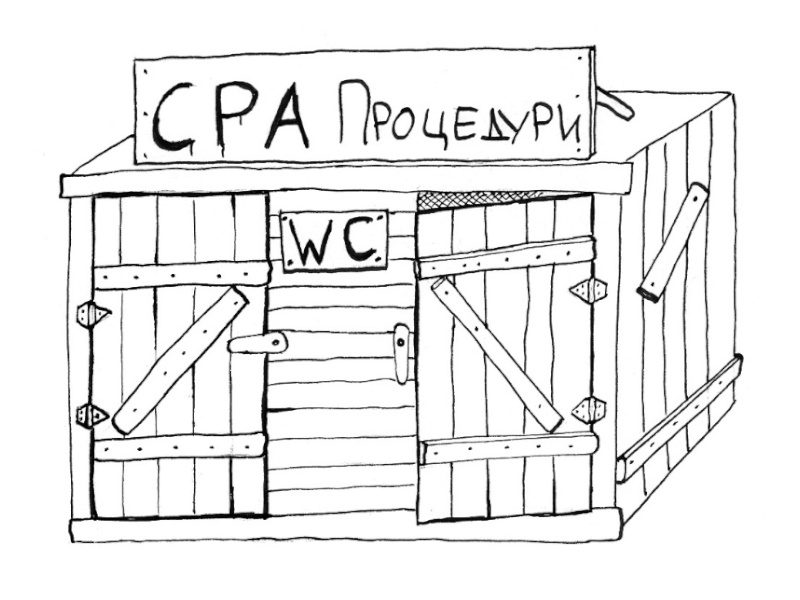 СРА Процедури
WC